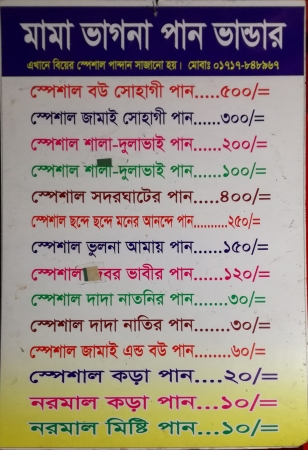 মামা ভাগনা পান ভান্ডার
এখানে বিয়ের স্পেশাল পান্দান সাজানো হয়। মোবাঃ ০১৭১৭-৮৪৮৯৬৭
স্পেশাল বউ সোহাগী পান.....৫০০/=
স্পেশাল জামাই সোহাগী পান......৩০০/=
স্পেশাল শালা-দুলাভাই পান......২০০/=
স্পেশাল শালী-দুলাভাই পান......১০০/=
স্পেশাল সদরঘাটের পান....৪০০/=
স্পেশাল ছন্দে ছন্দে মনের আনন্দে পান..........২৫০/=
স্পেশাল ভুলনা আমায় পান.....১৫০/=
স্পেশাল বর ভাবীর পান......১২০/=
স্পেশাল দাদা নাতনির পান......৩০/=
স্পেশাল দাদা নাতির পান......৩০/=
স্পেশাল জামাই এন্ড বউ পান.......৬০/=
স্পেশাল কড়া পান....২০/=
নরমাল কড়া পান....১০/=
নরমাল মিষ্টি পান....১০/=